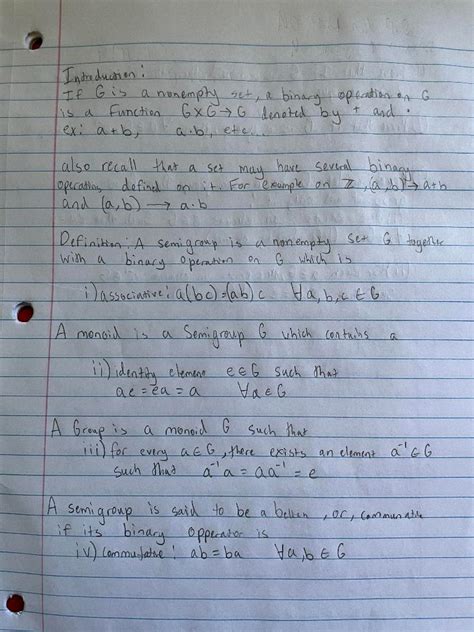 Introduction:
If G is a nonempty set, a binary operation on G
is a function G×G→G denoted by + and ·
ex: a+b, a·b, etc...
also recall that a set may have several binary
operations defined on it. For example on ℤ, (a,b)↦a+b
and (a,b) → a·b
Definition: A semigroup is a nonempty set G together
with a binary operation on G which is
i) associative: a(bc)=(ab)c ∀a,b,c ∈ G
A monoid is a Semigroup G which contains a
ii) identity element e∈G such that
ae=ea=a ∀a∈G
A Group is a monoid G such that
iii) for every a∈G, there exists an element a⁻¹∈G
such that a⁻¹a=aa⁻¹=e
A semigroup is said to be a , or,
if its binary opperator is
iv) commutative: ab=ba ∀a,b ∈ G